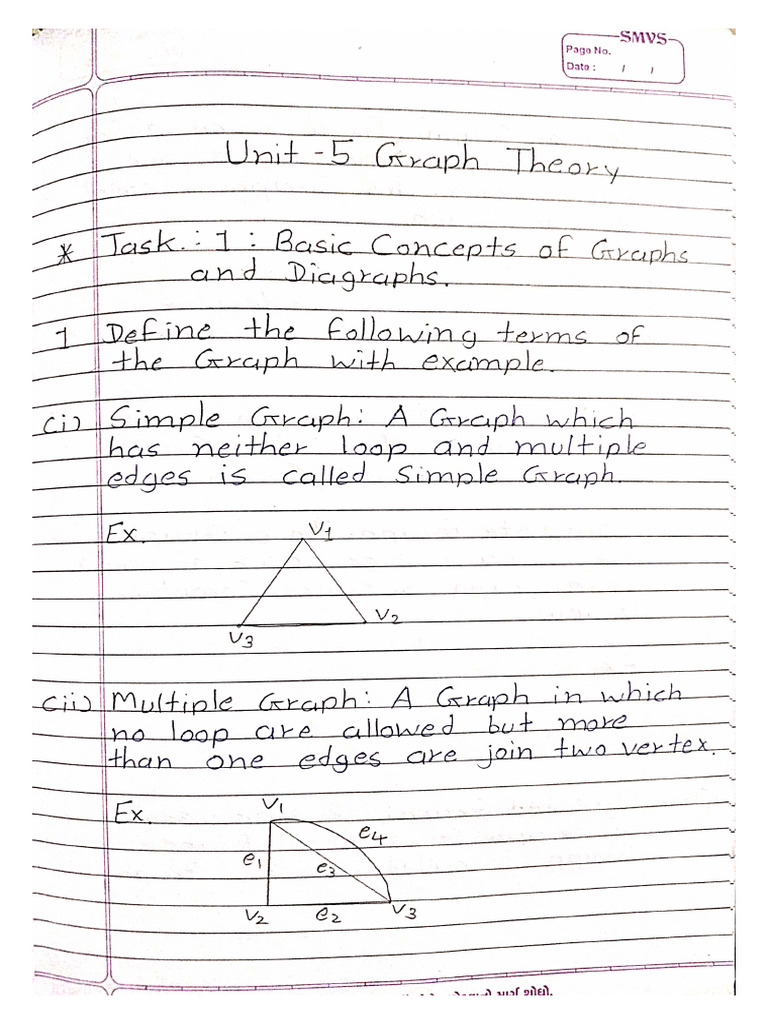 SMVS
Page No.
Date : / /
Unit -5 Graph Theory
* Task.: 1 : Basic Concepts of Graphs
and Diagraphs.
1 Define the following terms of
the Graph with example.
(i) Simple Graph: A Graph which
has neither loop and multiple
edges is called Simple Graph.
Ex.
V1
V2
V3
(ii) Multiple Graph: A Graph in which
no loop are allowed but more
than one edges are join two vertex.
Ex.
V1
e4
e1
e3
V2 e2 V3
માર્ગ શોધો.